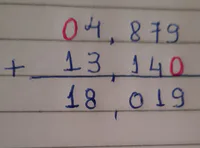 04,879
+ 13,140
18,019